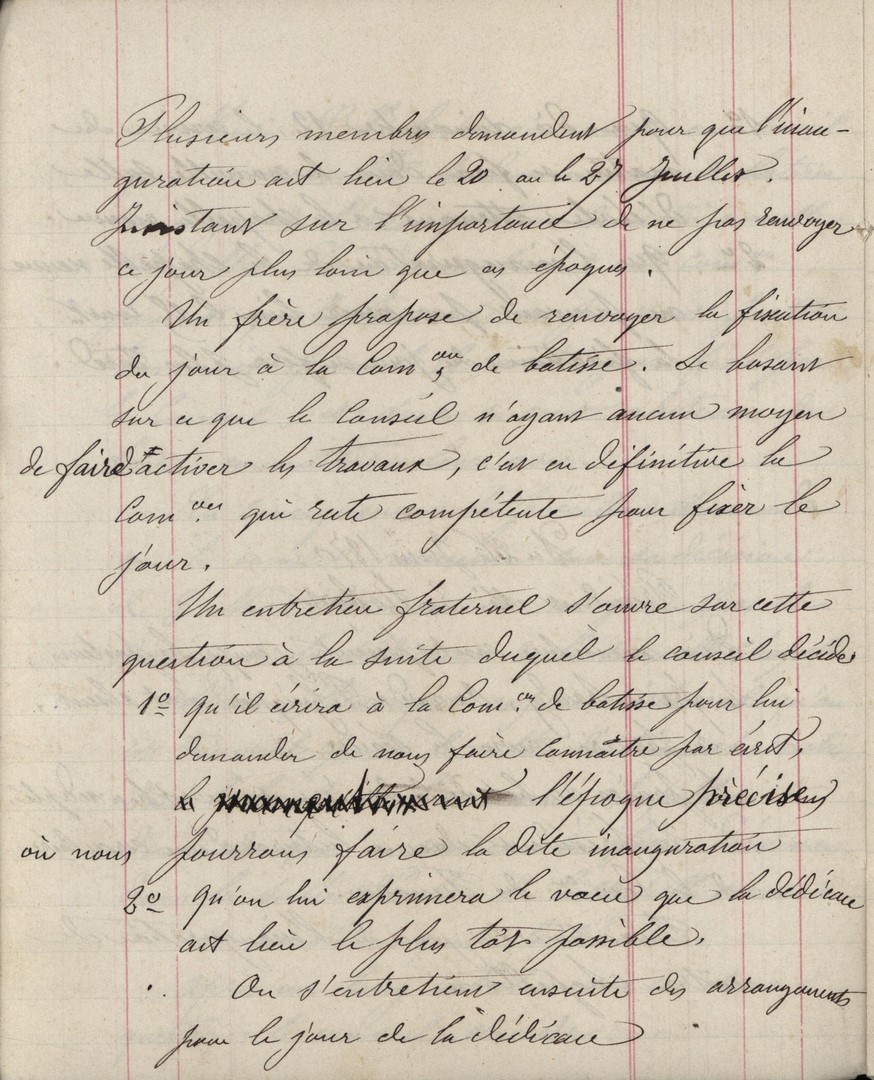 Plusieurs membres demandent pour que l'inau-
guration ait lieu le 20 ou le 27 Juillet.
Insistant sur l'importance de ne pas renvoyer
ce jour plus loin que ces époques.
Un frère propose de renvoyer la fixation
du jour à la Com.on de batisse. Se basant
sur ce que le Conseil n'ayant aucun moyen
de faire activer les travaux, c'est en définitive la
Com.on qui reste compétente pour fixer le
jour.
Un entretien fraternel s'ouvre sur cette
question à la suite duquel le conseil décide
1o qu'il écrira à la Com.on de batisse pour lui
demander de nous faire connaître par écrit,
l'époque précise
où nous pourrons faire la dite inauguration
2o qu'on lui exprimera le vœu que la dédicace
ait lieu le plus tôt possible.
On s'entretient ensuite des arrangements
pour le jour de la dédicace